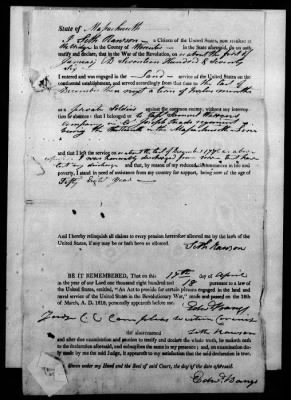 State of Massachusetts
I Seth Rawson — a Citizen of the United States, now resident at
Uxbridge, in the County of Worcester — in the State aforesaid, do on oath
testify and declare, that in the War of the Revolution, on or about the first of
January AD Seventeen Hundred & Seventy
Six
I entered and was engaged in the — Land — service of the United States on the
continental establishment, and served accordingly from that time to the last of
December then next a term of twelve months
as a private Soldier against the common enemy, without any interrup-
tion or absence: that I belonged to Capt Samuel Warrens
Company in Col Joseph Reads regiment
being the thirteenth in the Massachusetts Line
and that I left the service on or about the last of December 1776 as above
I was honorably discharged from service but have
lost my discharge and that, by reason of my reduced circumstances in life and
poverty, I stand in need of assistance from my country for support, being now of the age of
Fifty Eight Years —
And I hereby relinquish all claims to every pension heretofore allowed me by the laws of the
United States, if any may be or hath been so allowed.
Seth Rawson
BE IT REMEMBERED, That on this 17th day of April
in the year of our Lord one thousand eight hundred and 18 pursuant to a law of
the United States, entitled, "An Act to provide for certain persons engaged in the land and
naval service of the United States in the Revolutionary War," made and passed on the 18th
of March, A. D. 1818, personally appeared before me Edwd Bangs
Judge C. C. Com pleas western Circuit
the aforenamed Seth Rawson
and after due examination and penition to testify and declare the whole truth, he maketh oath
to the declaration aforesaid, and subscribes the same in my presence; and, on examination du-
ly made by me the said Judge, it appears to my satisfaction that the said declaration is true.
Given under my Hand and the Seal of said Court, the day of the date aforesaid.
Edwd Bangs